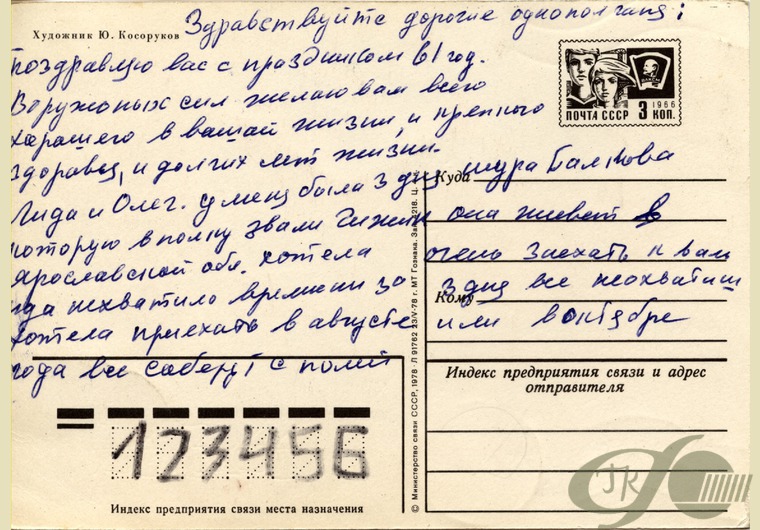 Художник Ю. Косоруков
Здравствуйте дорогие однополчане!
поздравлю вас с праздником 61 год.
Воружоных сил желаю вам всего
харашего в вашай жизни, и крепкого
здоровья, и долгих лет жизни.
Лида и Олег. у меня была 3 дня шура Балкова
которую в полку звали Чижик она живет в
ярославской обл. хотела очень заехать к вам
да нехватило времени за 3 дня все неохватиш
хотела приехать в августе или воктебре
года все соберут с полей
ПОЧТА СССР 3 КОП.
1966
Куда
Кому
Индекс предприятия связи и адрес
отправителя
123456
Индекс предприятия связи места назначения
© Министерство связи СССР, 1978 · Л 91762 23/V-78 г. МТ Гознака. Зак. 218. Ц.
ГК